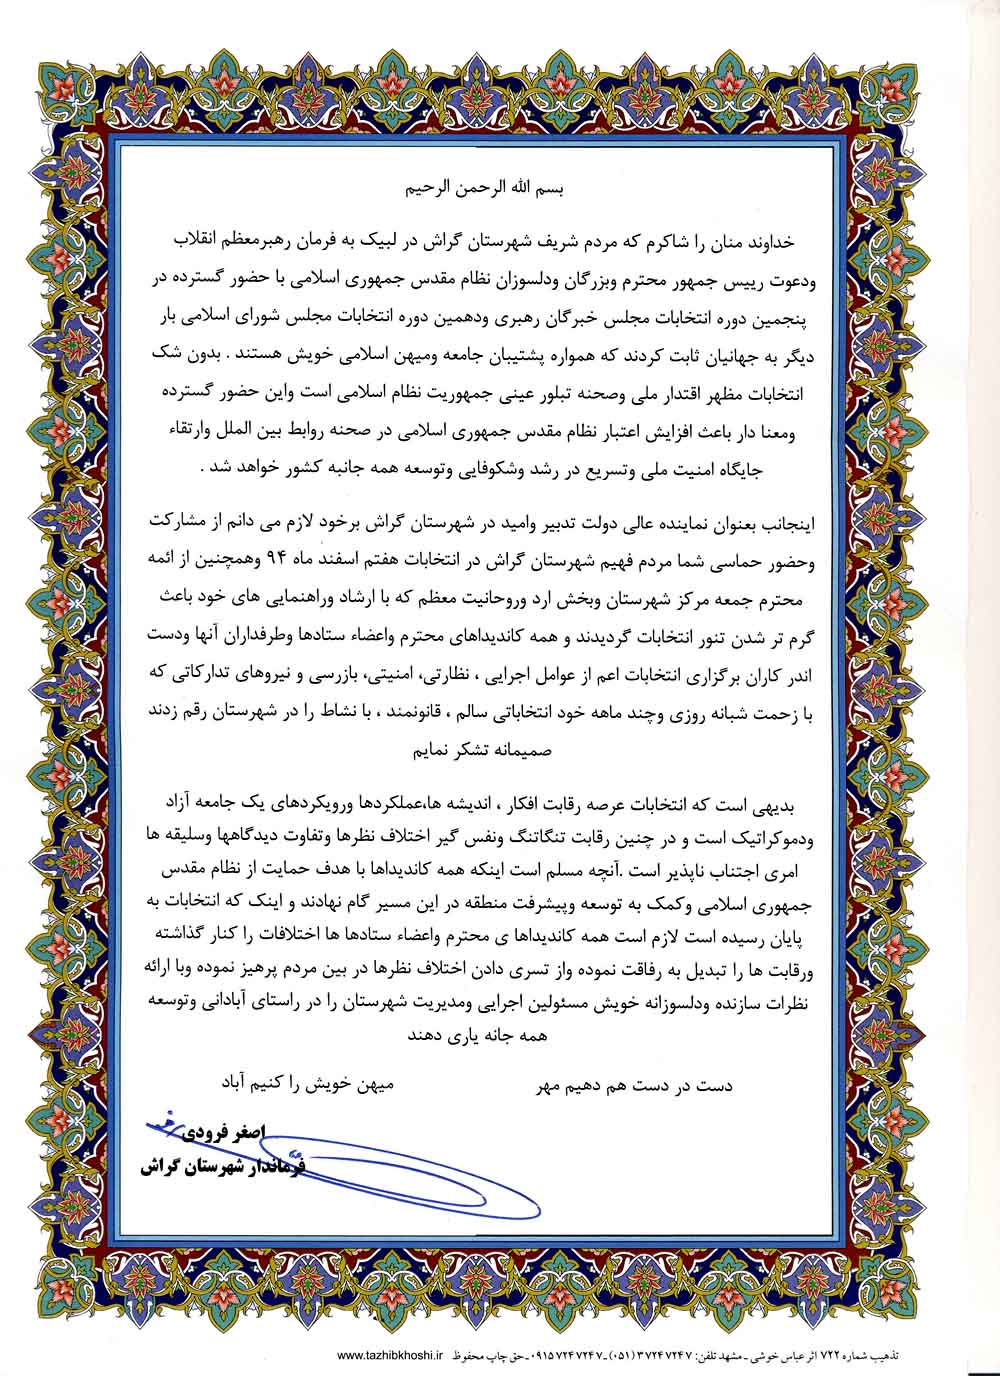 بسم الله الرحمن الرحیم
خداوند منان را شاکرم که مردم شریف شهرستان گراش در لبیک به فرمان رهبرمعظم انقلاب
ودعوت رییس جمهور محترم وبزرگان ودلسوزان نظام مقدس جمهوری اسلامی با حضور گسترده در
پنجمین دوره انتخابات مجلس خبرگان رهبری ودهمین دوره انتخابات مجلس شورای اسلامی بار
دیگر به جهانیان ثابت کردند که همواره پشتیبان جامعه ومیهن اسلامی خویش هستند . بدون شک
انتخابات مظهر اقتدار ملی وصحنه تبلور عینی جمهوریت نظام اسلامی است واین حضور گسترده
ومعنا دار باعث افزایش اعتبار نظام مقدس جمهوری اسلامی در صحنه روابط بین الملل وارتقاء
جایگاه امنیت ملی وتسریع در رشد وشکوفایی وتوسعه همه جانبه کشور خواهد شد .
اینجانب بعنوان نماینده عالی دولت تدبیر وامید در شهرستان گراش برخود لازم می دانم از مشارکت
وحضور حماسی شما مردم فهیم شهرستان گراش در انتخابات هفتم اسفند ماه ۹۴ وهمچنین از ائمه
محترم جمعه مرکز شهرستان وبخش ارد وروحانیت معظم که با ارشاد وراهنمایی های خود باعث
گرم تر شدن تنور انتخابات گردیدند و همه کاندیداهای محترم واعضاء ستادها وطرفداران آنها ودست
اندر کاران برگزاری انتخابات اعم از عوامل اجرایی ، نظارتی، امنیتی، بازرسی و نیروهای تدارکاتی که
با زحمت شبانه روزی وچند ماهه خود انتخاباتی سالم ، قانونمند ، با نشاط را در شهرستان رقم زدند
صمیمانه تشکر نمایم
بدیهی است که انتخابات عرصه رقابت افکار ، اندیشه ها،عملکردها ورویکردهای یک جامعه آزاد
ودموکراتیک است و در چنین رقابت تنگاتنگ ونفس گیر اختلاف نظرها وتفاوت دیدگاهها وسلیقه ها
امری اجتناب ناپذیر است .آنچه مسلم است اینکه همه کاندیداها با هدف حمایت از نظام مقدس
جمهوری اسلامی وکمک به توسعه وپیشرفت منطقه در این مسیر گام نهادند و اینک که انتخابات به
پایان رسیده است لازم است همه کاندیداها ی محترم واعضاء ستادها ها اختلافات را کنار گذاشته
ورقابت ها را تبدیل به رفاقت نموده واز تسری دادن اختلاف نظرها در بین مردم پرهیز نموده وبا ارائه
نظرات سازنده ودلسوزانه خویش مسئولین اجرایی ومدیریت شهرستان را در راستای آبادانی وتوسعه
همه جانه یاری دهند
دست در دست هم دهیم مهر میهن خویش را کنیم آباد
اصغر فرودی
فرماندار شهرستان گراش
تذهیب شماره ۷۲۲ اثر عباس خوشی ـ مشهد تلفن: ۳۷۲۴۷۲۴۷ (۰۵۱) ـ ۰۹۱۵۷۲۴۷۲۴۷ ـ حق چاپ محفوظ www.tazhibkhoshi.ir